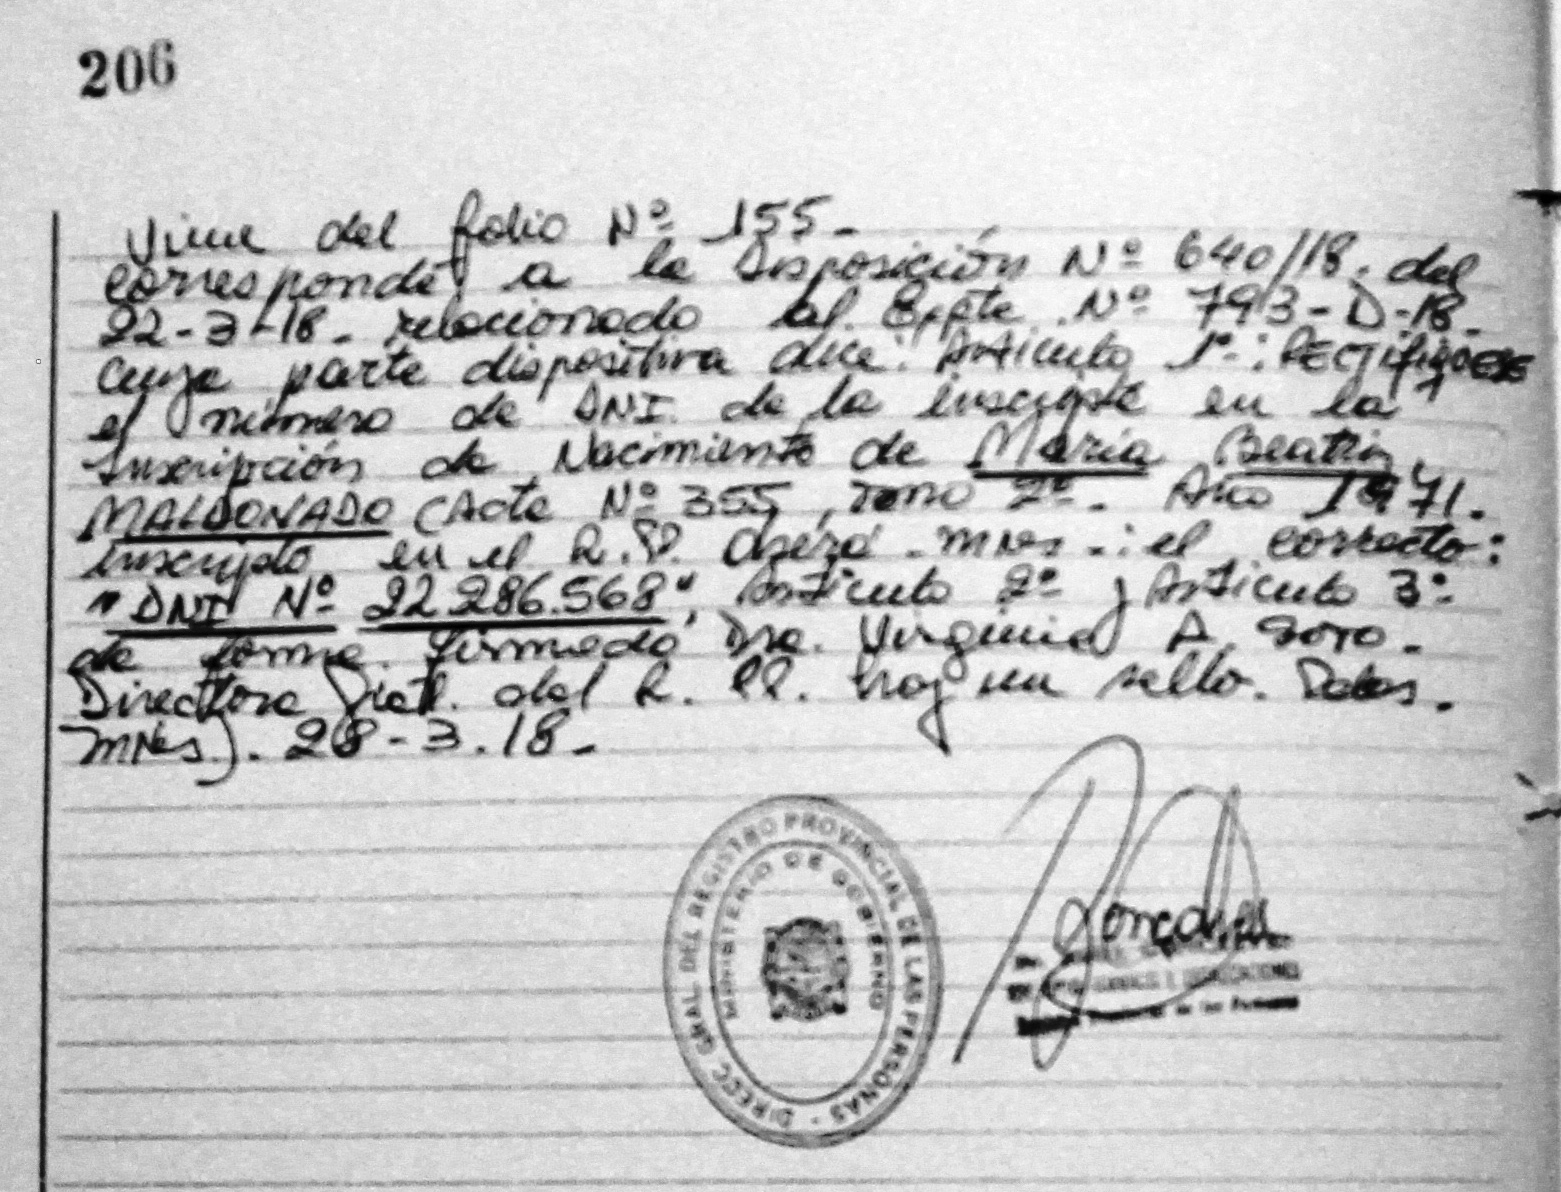 206
Viene del folio Nº 155-
corresponde a la Disposición Nº 640/18. del
22-3-18- relacionado al Expte. Nº 793-D-18-
cuya parte dispositiva dice: Artículo 1º-: RECTIFIQUESE
el número de DNI. de la inscripta en la
Inscripción de Nacimiento de María Beatriz
MALDONADO (Acta Nº 355, Tomo 2º-. Año 1971.
inscripto en el R.P. Oberá-Mnes-: el correcto:
"DNI Nº 22.286.568", Artículo 2º y Artículo 3º
de forma. Firmado Dra. Virginia A. Soto.
Directora Gral. del R. PP. hay un sello. Pdas.
Mnes). 28-3.18-
DIREC. GRAL. DEL REGISTRO PROVINCIAL DE LAS PERSONAS -
MINISTERIO DE GOBIERNO
Provincial de las Personas